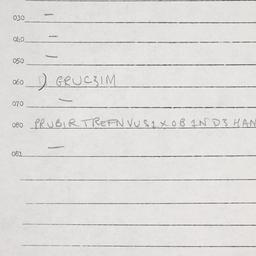 030 —
040 —
050 —
060 1) GRUC31M
070 —
080 PRUBIR TREFNVUS1X0B 1ND3HAN
081 —